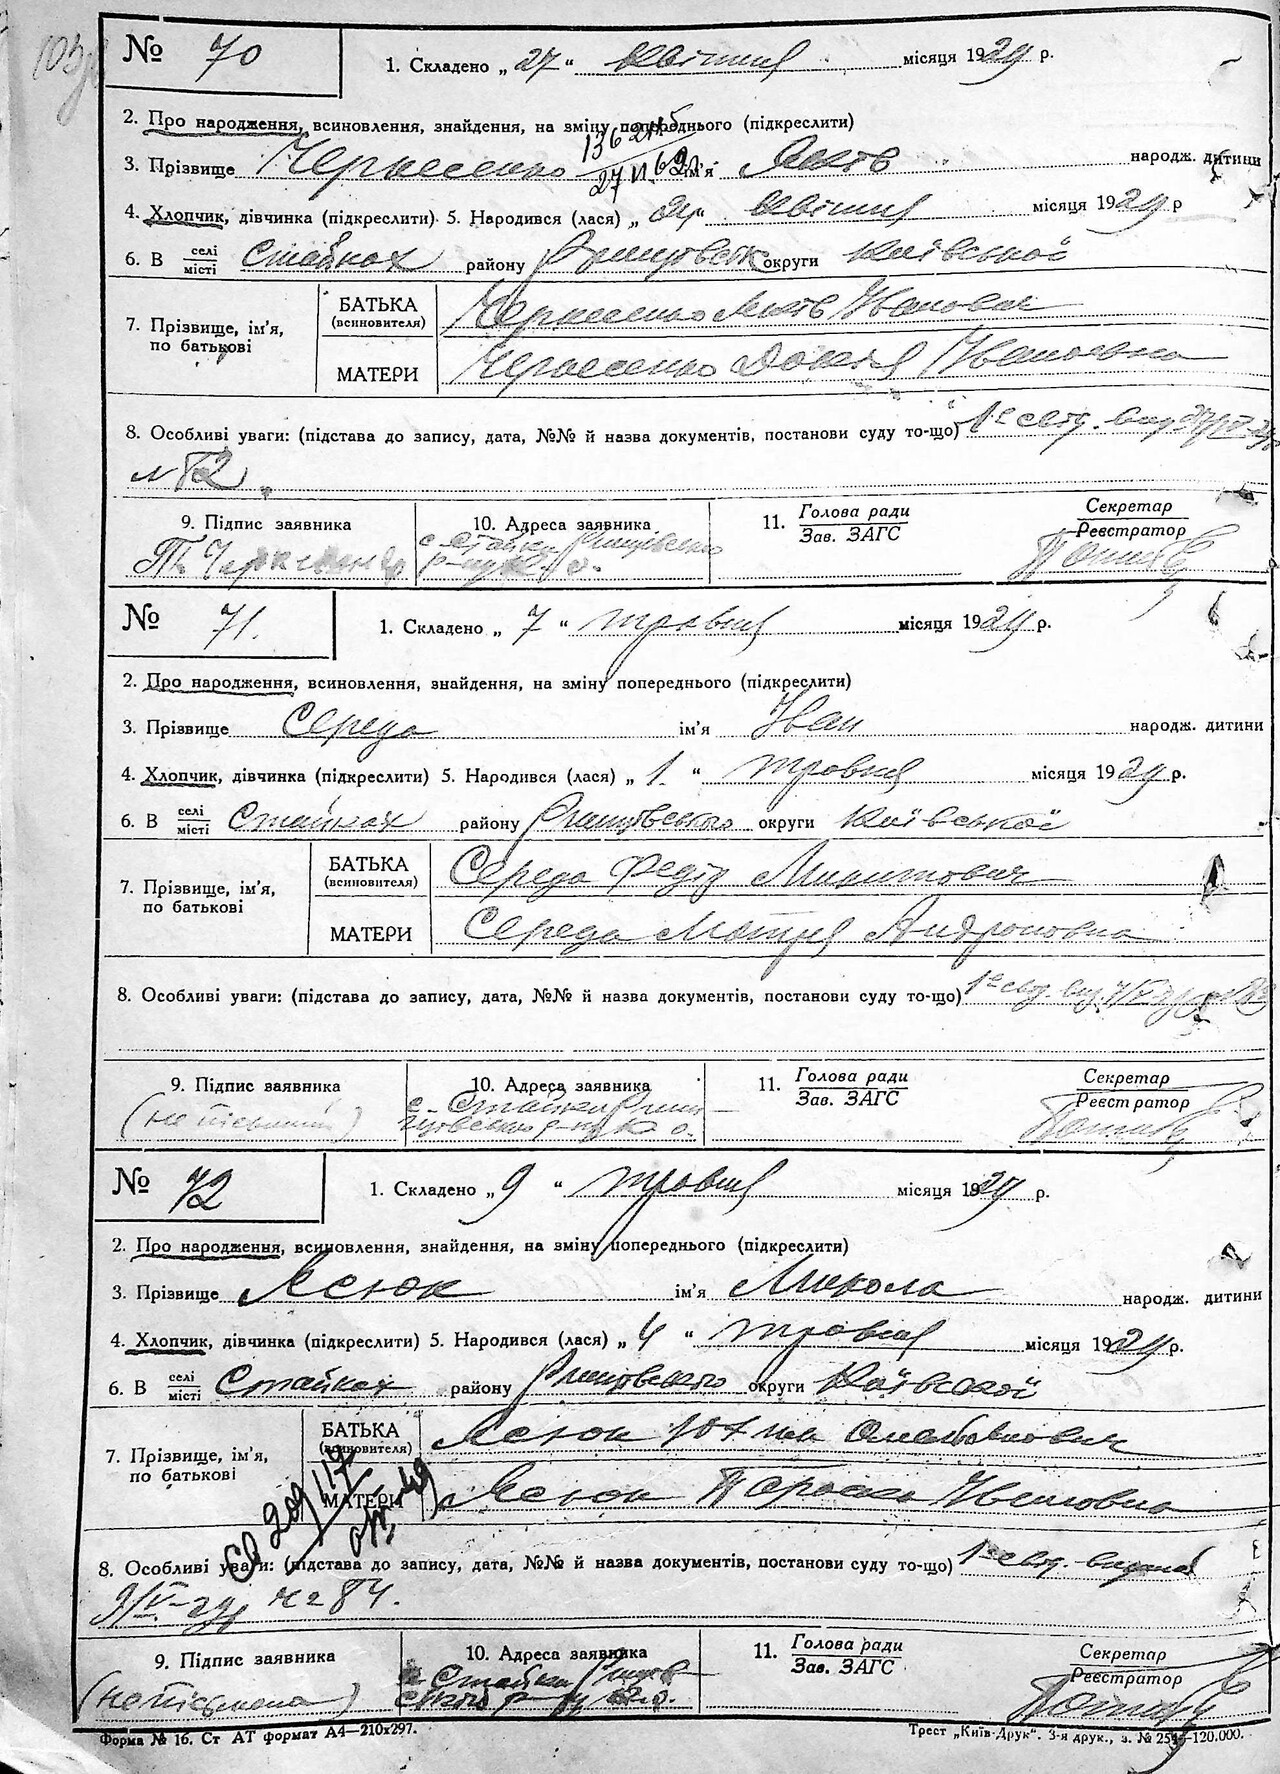 № 70 1. Складено „ 27 “ квітня місяця 1929 р.
2. Про народження, всиновлення, знайдення, на зміну попереднього (підкреслити)
3. Прізвище Черпесенко ім'я Яків народж. дитини
4. Хлопчик, дівчинка (підкреслити) 5. Народився (лася) „ “ квітня місяця 1929 р
6. В селі/місті Стайках району Ржищівськ округи Київської
7. Прізвище, ім'я, по батькові
БАТЬКА (всиновителя) Яків Іванович
МАТЕРИ Докія Івановна
8. Особливі уваги: (підстава до запису, дата, №№ й назва документів, постанови суду то-що) 1е свід. вид 27/IV-29р
№ 82
9. Підпис заявника 10. Адреса заявника 11. Голова ради/Зав. ЗАГС Секретар/Реєстратор
с. Стайки Ржищівського
р-ну К. о.
№ 71. 1. Складено „ 7 “ травня місяця 1929 р.
2. Про народження, всиновлення, знайдення, на зміну попереднього (підкреслити)
3. Прізвище Середа ім'я Іван народж. дитини
4. Хлопчик, дівчинка (підкреслити) 5. Народився (лася) „ 1 “ травня місяця 1929 р.
6. В селі/місті Стайках району Ржищівського округи Київської
7. Прізвище, ім'я, по батькові
БАТЬКА (всиновителя) Середа Федір Микитович
МАТЕРИ Середа Мотря Андроновна
8. Особливі уваги: (підстава до запису, дата, №№ й назва документів, постанови суду то-що) 1е свід. вид. 7/V 29р
9. Підпис заявника 10. Адреса заявника 11. Голова ради/Зав. ЗАГС Секретар/Реєстратор
(не пісьмений) с. Стайки Ржи-
щівського р-ну К. о.
№ 72 1. Складено „ 9 “ травня місяця 1929 р.
2. Про народження, всиновлення, знайдення, на зміну попереднього (підкреслити)
3. Прізвище Ясюк ім'я Микола народж. дитини
4. Хлопчик, дівчинка (підкреслити) 5. Народився (лася) „ 4 “ травня місяця 1929 р.
6. В селі/місті Стайках району Ржищівського округи Київської
7. Прізвище, ім'я, по батькові
БАТЬКА (всиновителя) Ясюк Юхим
МАТЕРИ Ясюк Параска Івановна
8. Особливі уваги: (підстава до запису, дата, №№ й назва документів, постанови суду то-що) 1е свід. видано
9/V-29р № 84.
9. Підпис заявника 10. Адреса заявника 11. Голова ради/Зав. ЗАГС Секретар/Реєстратор
(непісьмена) с. Стайки Ржищів-
ського р-ну К. о.
Форма № 16. Ст АТ формат А4—210х297. Трест „Київ-Друк“. 3-я друк., з. № —120.000.